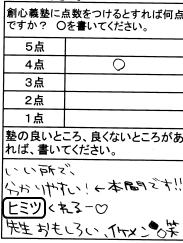 創心義塾に点数をつけるとすれば何点
ですか？　○を書いてください。
5点
4点 ○
3点
2点
1点
塾の良いところ、良くないところがあ
れば、書いてください。
いい所で、
分かりやすい！←本間です!!
ヒミツ くれるー♡
先生おもしろい、イケメン 笑